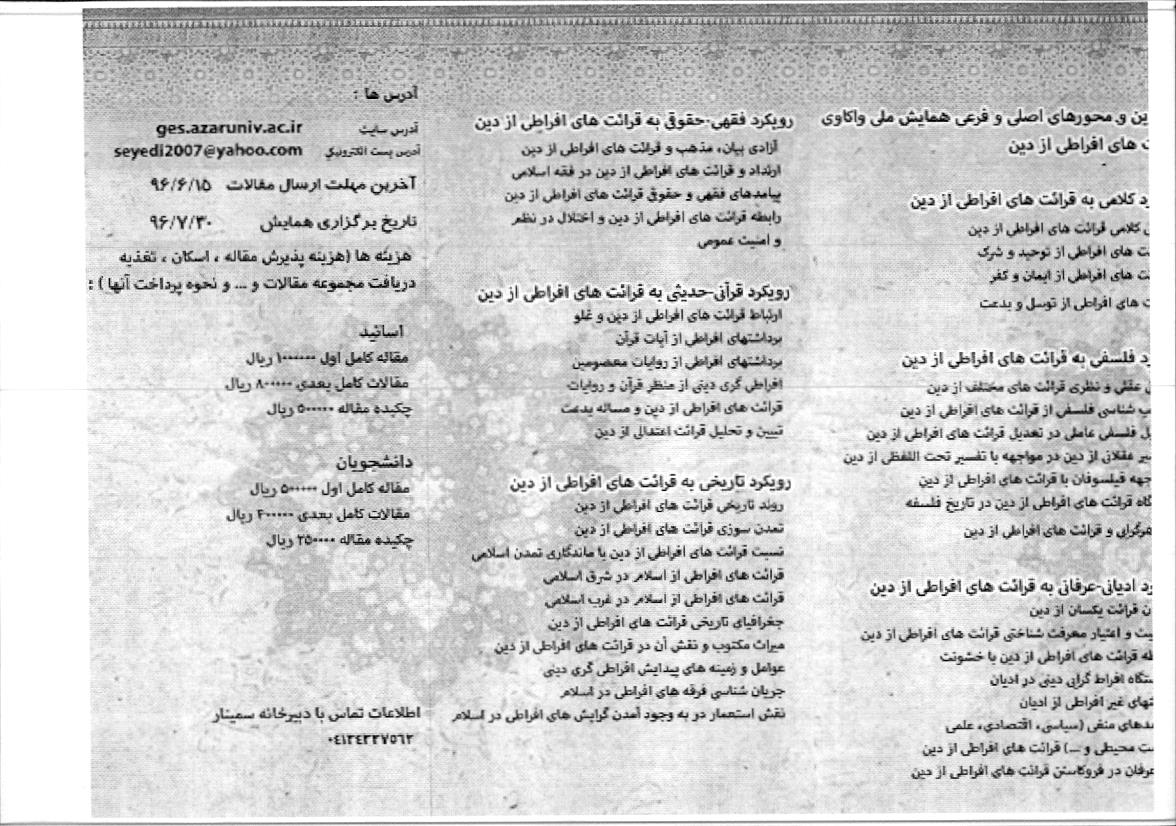 ین و محورهای اصلی و فرعی همایش ملی واکاوی
ت های افراطی از دین
د کلامی به قرائت های افراطی از دین
ی کلامی قرائت های افراطی از دین
ت های افراطی از توحید و شرک
ت های افراطی از ایمان و کفر
ت های افراطی از توسل و بدعت
د فلسفی به قرائت های افراطی از دین
ی عقلی و نظری قرائت های مختلف از دین
ب شناسی فلسفی از قرائت های افراطی از دین
ل فلسفی عاملی در تعدیل قرائت های افراطی از دین
یر عقلانی از دین در مواجهه با تفسیر تحت اللفظی از دین
جهه فیلسوفان با قرائت های افراطی از دین
گاه قرائت های افراطی از دین در تاریخ فلسفه
هرگرایی و قرائت های افراطی از دین
د ادیانی-عرفانی به قرائت های افراطی از دین
ن قرائت یکسان از دین
یت و اعتبار معرفت شناختی قرائت های افراطی از دین
طه قرائت های افراطی از دین با خشونت
ستگاه افراط گرایی دینی در ادیان
تهای غیر افراطی از ادیان
مدهای منفی (سیاسی، اقتصادی، علمی
ت محیطی و ...) قرائت های افراطی از دین
عرفان در فروکاستن قرائت های افراطی از دین
رویکرد فقهی-حقوقی به قرائت های افراطی از دین
آزادی بیان، مذهب و قرائت های افراطی از دین
ارتداد و قرائت های افراطی از دین در فقه اسلامی
پیامدهای فقهی و حقوقی قرائت های افراطی از دین
رابطه قرائت های افراطی از دین و اختلال در نظم
و امنیت عمومی
رویکرد قرآنی-حدیثی به قرائت های افراطی از دین
ارتباط قرائت های افراطی از دین و غلو
برداشتهای افراطی از آیات قرآن
برداشتهای افراطی از روایات معصومین
افراطی گری دینی از منظر قرآن و روایات
قرائت های افراطی از دین و مساله بدعت
تبیین و تحلیل قرائت اعتدالی از دین
رویکرد تاریخی به قرائت های افراطی از دین
روند تاریخی قرائت های افراطی از دین
تمدن سوزی قرائت های افراطی از دین
نسبت قرائت های افراطی از دین با ماندگاری تمدن اسلامی
قرائت های افراطی از اسلام در شرق اسلامی
قرائت های افراطی از اسلام در غرب اسلامی
جغرافیای تاریخی قرائت های افراطی از دین
میراث مکتوب و نقش آن در قرائت های افراطی از دین
عوامل و زمینه های پیدایش افراطی گری دینی
جریان شناسی فرقه های افراطی در اسلام
نقش استعمار در به وجود آمدن گرایش های افراطی در اسلام
آدرس ها :
آدرس سایت ges.azaruniv.ac.ir
آدرس پست الکترونیکی seyedi2007@yahoo.com
آخرین مهلت ارسال مقالات ۹۶/۶/۱۵
تاریخ برگزاری همایش ۹۶/۷/۳۰
هزینه ها (هزینه پذیرش مقاله ، اسکان ، تغذیه
دریافت مجموعه مقالات و ... و نحوه پرداخت آنها ) :
اساتید
مقاله کامل اول ۱۰۰۰۰۰۰ ریال
مقالات کامل بعدی ۸۰۰۰۰۰ ریال
چکیده مقاله ۵۰۰۰۰۰ ریال
دانشجویان
مقاله کامل اول ۵۰۰۰۰۰ ریال
مقالات کامل بعدی ۴۰۰۰۰۰ ریال
چکیده مقاله ۲۵۰۰۰۰ ریال
اطلاعات تماس با دبیرخانه سمینار
۰۴۱۳۴۳۲۷۵۶۲